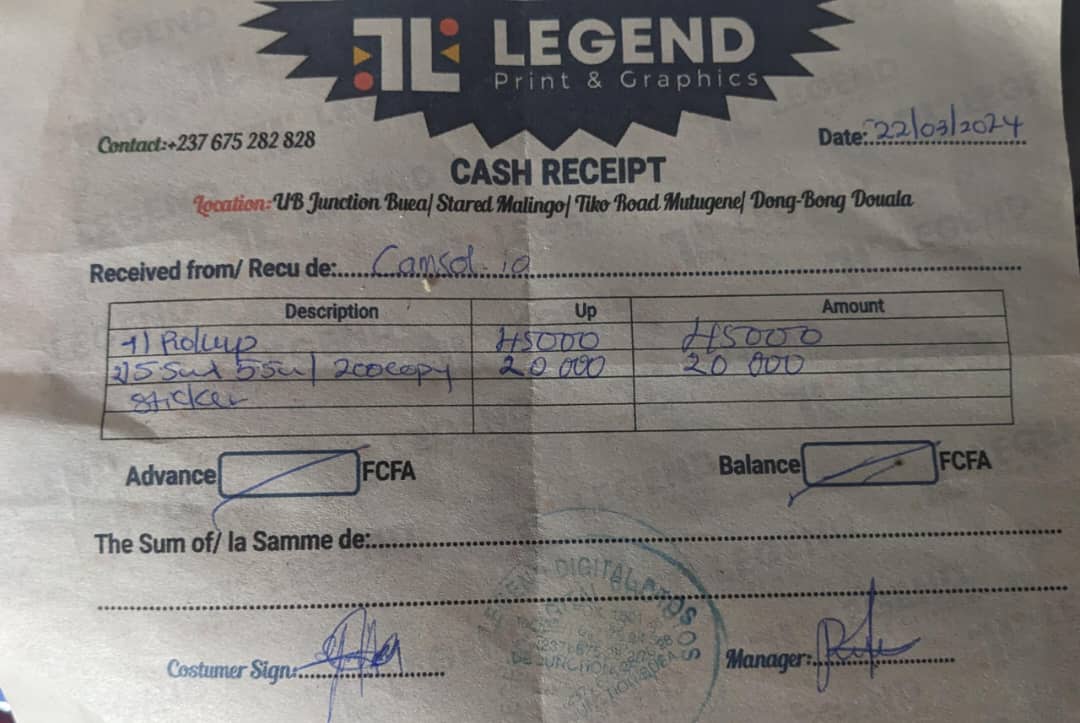 LEGEND
Print & Graphics
Contact:+237 675 282 828
Date: 22/03/2024
CASH RECEIPT
Location: UB Junction Buea/ Stared Malingo/ Tiko Road Mutugene/ Dong-Bong Douala
Received from/ Recu de: Camsol.io
Description Up Amount
1) Rollup 45000 45000
2) 5 200copy 20 000 20 000
sticker
Advance FCFA
Balance FCFA
The Sum of/ la Samme de:
DIGITAL
JUNCTION
Costumer Sign:
Manager: